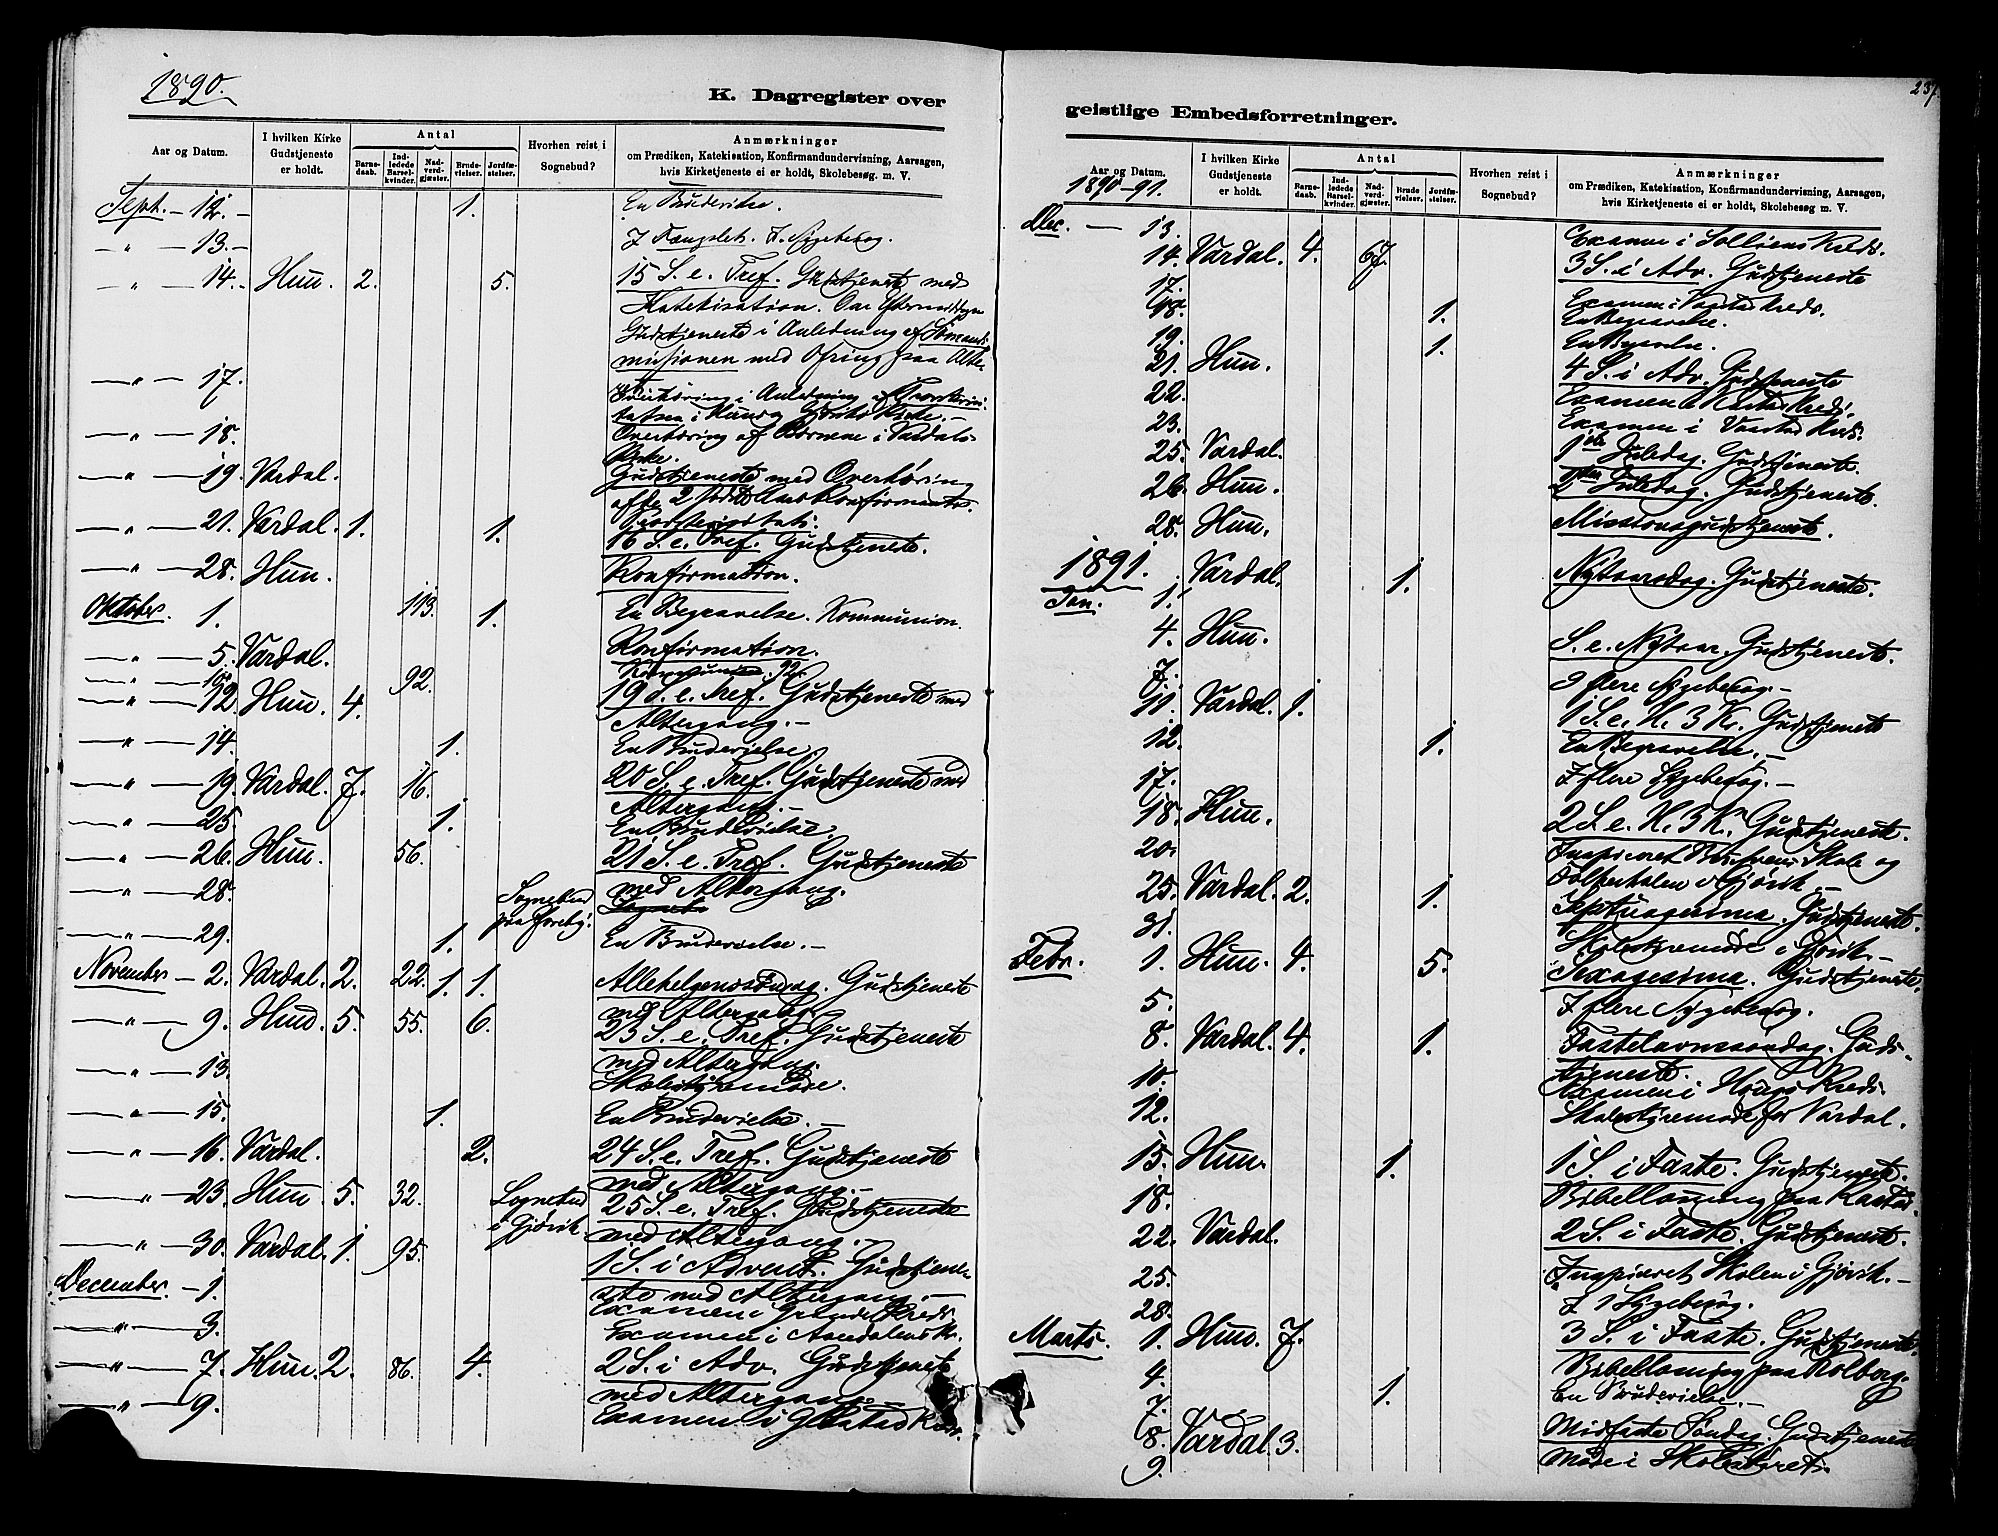 1890.
K. Dagregister over
Aar og Datum.
I hvilken Kirke Gudstjeneste er holdt.
Antal
Barnedaab.
Indledede Barselkvinder.
Nadverdgjæster.
Brudevielser.
Jordfæstelser.
Hvorhen reist i Sognebud?
Anmærkninger
om Prædiken, Katekisation, Konfirmandundervisning, Aarsagen,
hvis Kirketjeneste ei er holdt, Skolebesøg m. V.
Sept. — 12. — 1. En Brudevielse.
" — 13. — I Fængslet. Sygebesøg.
" — 14. — Hun. 2. 5. 15 S. e. Tref. Gudstjeneste med
Katekisation.
Gudstjeneste i Anledning af Sømands-
missionen med Ofring paa Alter
" — 17. i Anledning af
Kirke. —
" — 18. Overhøring af Børnene i Vardals
Kirke.
" — 19. Vardal. Gudstjeneste med Overhøring
" — 21. Vardal. 1. 1. 16 S. e. Tref. Gudstjeneste.
" — 28. Hun. Konfirmation.
Oktober. 1. 113. 1. En Begravelse. Kommunion.
" — 5. Vardal. Konfirmation.
92.
" — 12 Hun. 4. 19 S. e. Tref. Gudstjeneste med
Altergang. —
" — 14. 1. En Brudevielse.
" — 19. Vardal. 7. 16. 20 S. e. Tref. Gudstjeneste med
Altergang. —
" — 25. 1. En Brudevielse.
" — 26. Hun. 56. 21 S. e. Tref. Gudstjeneste
med Altergang.
" — 28. Sognebud
" — 29. 1. En Brudevielse. —
November — 2. Vardal. 2. 22. 1. 1. Allehelgenssøndag. Gudstjeneste
med Altergang.
" — 9. Hun. 5. 55. 6. 23 S. e. Tref. Gudstjeneste
med Altergang.
" — 13. Skolestyremøde.
" — 15. 1. En Brudevielse. —
" — 16. Vardal. 2. 24 S. e. Tref. Gudstjeneste
med Altergang. —
" — 23. Hun. 5. 32. Sognebud i Gjøvik. 25 S. e. Tref. Gudstjeneste
med Altergang. —
" — 30. Vardal. 1. 95. 1 S. i Advent. Gudstjene-
ste med Altergang. —
December. — 1. Examen i Kreds.
" — 3. Examen i
" — 7. Hun. 2. 86. 4. 2 S. i Adv. Gudstjeneste
med Altergang. —
" — 9. Examen i
237.
geistlige Embedsforretninger.
Aar og Datum.
I hvilken Kirke Gudstjeneste er holdt.
Antal
Barnedaab.
Indledede Barselkvinder.
Nadverdgjæster.
Brudevielser.
Jordfæstelser.
Hvorhen reist i Sognebud?
Anmærkninger
om Prædiken, Katekisation, Konfirmandundervisning, Aarsagen,
hvis Kirketjeneste ei er holdt, Skolebesøg m. V.
1890—91.
Dec. — 13. Examen i Solliens Kreds.
14. Vardal. 4. 67. 3 S. i Adv. Gudstjeneste
17. Examen i Kreds.
18. 1. En Begravelse.
19. 1. En Begravelse.
21. Hun. 4 S. i Adv. Gudstjeneste
22. Examen i Kreds.
23. Examen i Kreds.
25. Vardal. 1ste Juledag. Gudstjeneste.
26. Hun. 2den Juledag. Gudstjeneste.
28. Hun. Missionsgudstjeneste.
1891.
Jan. 1. Vardal. 1. Nytaarsdag. Gudstjeneste.
4. Hun. S. e. Nytaar. Gudstjeneste.
7. I flere Sygebesøg. —
11. Vardal. 1. 1 S. e. H. 3 K. Gudstjeneste
12. 1. En Begravelse. —
17. I flere Sygebesøg.
18. Hun. 2 S. e. H. 3 K. Gudstjeneste.
20. Inspiceret Skole og
i Gjøvik. —
25. Vardal. 2. 1. Septuagesima. Gudstjeneste.
31. Skolestyremøde i Gjøvik. —
Febr. 1. Hun. 4. 5. Sexagesima. Gudstjeneste.
5. I flere Sygebesøg.
8. Vardal. 4. 1. Fastelavnssøndag. Guds-
tjeneste.
10. Examen i Kreds.
12. Skolestyremøde for Vardal.
15. Hun. 1. 1 S. i Faste. Gudstjeneste.
18. Bibellæsning paa
22. Vardal. 2 S. i Faste. Gudstjeneste.
25. Inspiceret Skolen i Gjøvik. —
28. I 1 Sygebesøg.
Marts. 1. Hun. 7. 3 S. i Faste. Gudstjeneste.
4. Bibellæsning paa Kolberg.
7. 1. En Brudevielse. —
8. Vardal. 3. Midfaste Søndag. Gudstjeneste
9. Møde i Skolestyret.